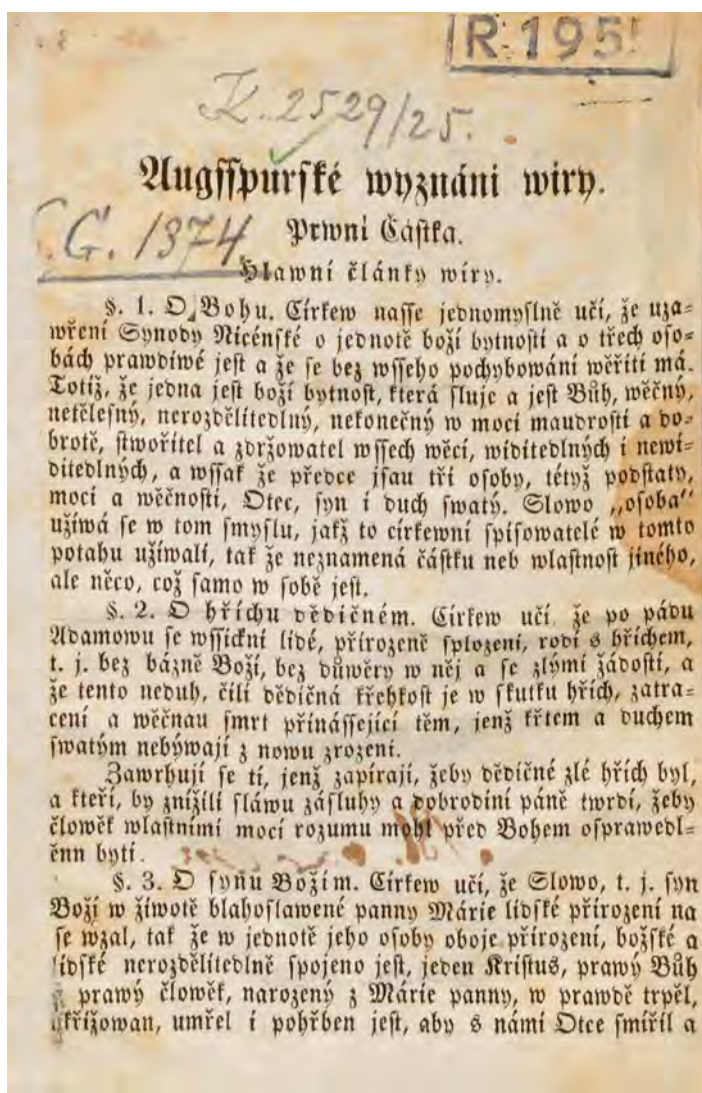 R. 195
K. 2529/25.
Augsspurské wyznáni wiry.
G. 1374
Prwni Částka.
Hlawní články wíry.
§. 1. O Bohu. Církew nasse jednomyslně učí, že uza=
wření Synody Nicénské o jednotě boží bytnosti a o třech oso=
bách prawdiwé jest a že se bez wsseho pochybowání wěřiti má.
Totiž, že jedna jest boží bytnost, která sluje a jest Bůh, wěčný,
netělesný, nerozdělitedlný, nekonečný w moci maudrosti a do=
brotě, stwořitel a zdržowatel wssech wěcí, widitedlných i newi=
ditedlných, a wssak že předce jsau tři osoby, tétyž podstaty,
moci a wěčnosti, Otec, syn i duch swatý. Slowo „osoba“
užíwá se w tom smyslu, jakž to církewní spisowatelé w tomto
potahu užíwali, tak že neznamená částku neb wlastnost jiného,
ale něco, což samo w sobě jest.
§. 2. O hříchu dědičném. Církew učí, že po pádu
Adamowu se wssickni lidé, přirozeně splozeni, rodí s hříchem,
t. j. bez bázně Boží, bez důwěry w něj a se zlými žádosti, a
že tento neduh, čili dědičná křehkost je w skutku hřích, zatra=
cení a wěčnau smrt přinássející těm, jenž křtem a duchem
swatým nebýwají z nowu zrozeni.
Zawrhují se ti, jenž zapírají, žeby dědičné zlé hřích byl,
a kteří, by znížili sláwu zásluhy a dobrodiní páně twrdí, žeby
člowěk wlastními mocí rozumu mohl před Bohem osprawedl=
ěnn býti.
§. 3. O synu Božím. Církew učí, že Slowo, t. j. syn
Boží w žiwotě blahoslawené panny Márie lidské přirození na
se wzal, tak že w jednotě jeho osoby oboje přirození, božské a
lidské nerozdělitedlně spojeno jest, jeden Kristus, prawý Bůh
prawý člowěk, narozený z Márie panny, w prawdě trpěl,
ukřižowan, umřel i pohřben jest, aby s námi Otce smířil a